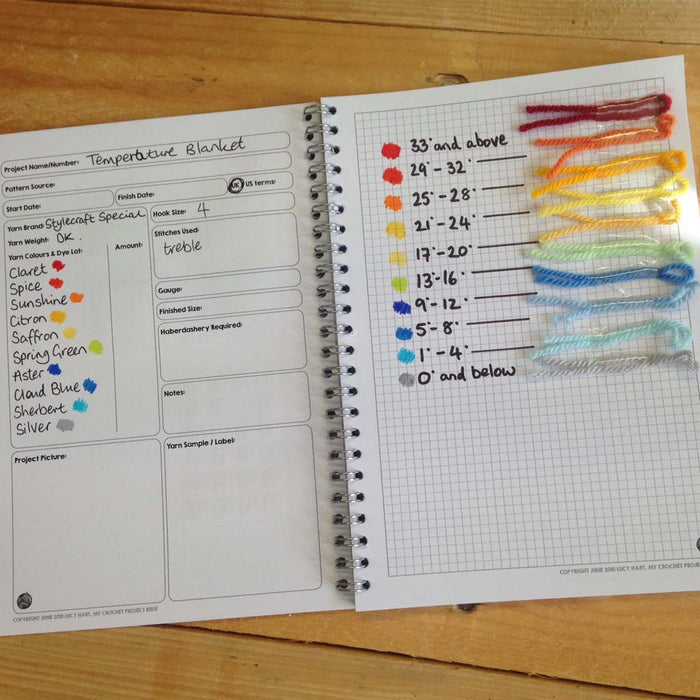 Project Name/Number: Temperature Blanket
Pattern Source:
Start Date:
Finish Date:
UK US terms:
Yarn Brand: Stylecraft Special
Hook Size: 4
Yarn Weight: DK.
Yarn Colours & Dye Lot:
Amount:
Stitches Used:
treble
Claret
Spice
Sunshine
Citron
Saffron
Spring Green
Aster
Cloud Blue
Sherbert
Silver
Gauge:
Finished Size:
Haberdashery Required:
Notes:
Project Picture:
Yarn Sample / Label:
COPYRIGHT JUNE 2015 LUCY HART, MY CROCHET PROJECT BIBLE
33° and above
29° - 32°
25° - 28°
21° - 24°
17° - 20°
13° - 16°
9° - 12°
5° - 8°
1° - 4°
0° and below
COPYRIGHT JUNE 2015 LUCY HART, MY CROCHET PROJE